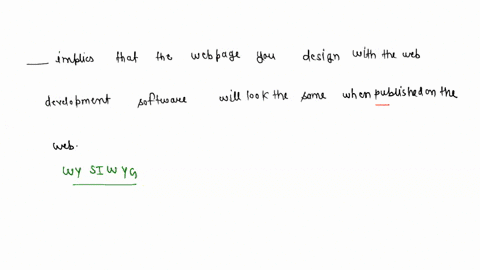 ___ implics that the webpage you design with the web
development software will look the some when published on the
web.
WY SIWYG